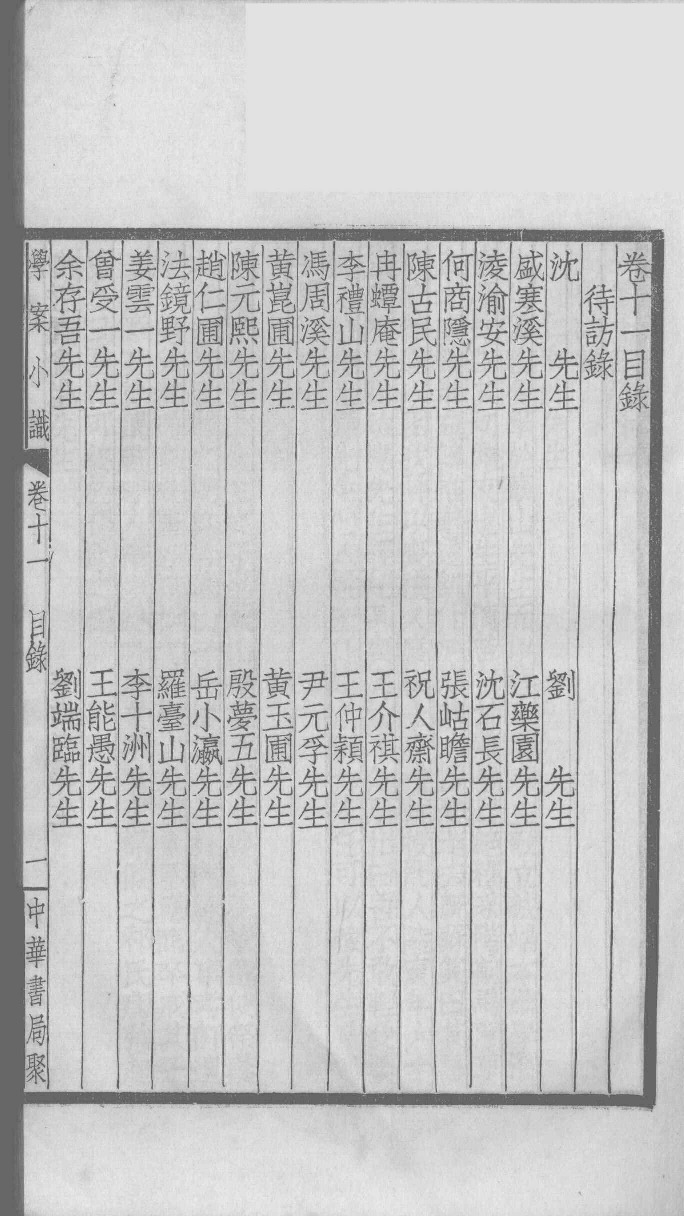 卷十一目錄
待訪錄
沈　先生　劉　先生
盛寒溪先生　江藥園先生
淩渝安先生　沈石長先生
何商隱先生　張岵瞻先生
陳古民先生　祝人齋先生
冉蟫庵先生　王介祺先生
李禮山先生　王仲穎先生
馮周溪先生　尹元孚先生
黃崑圃先生　黃玉圃先生
陳元熙先生　殷夢五先生
趙仁圃先生　岳小瀛先生
法鏡野先生　羅臺山先生
姜雲一先生　李十洲先生
曾受一先生　王能愚先生
余存吾先生　劉端臨先生
學案小識　卷十一　目錄　一　中華書局聚